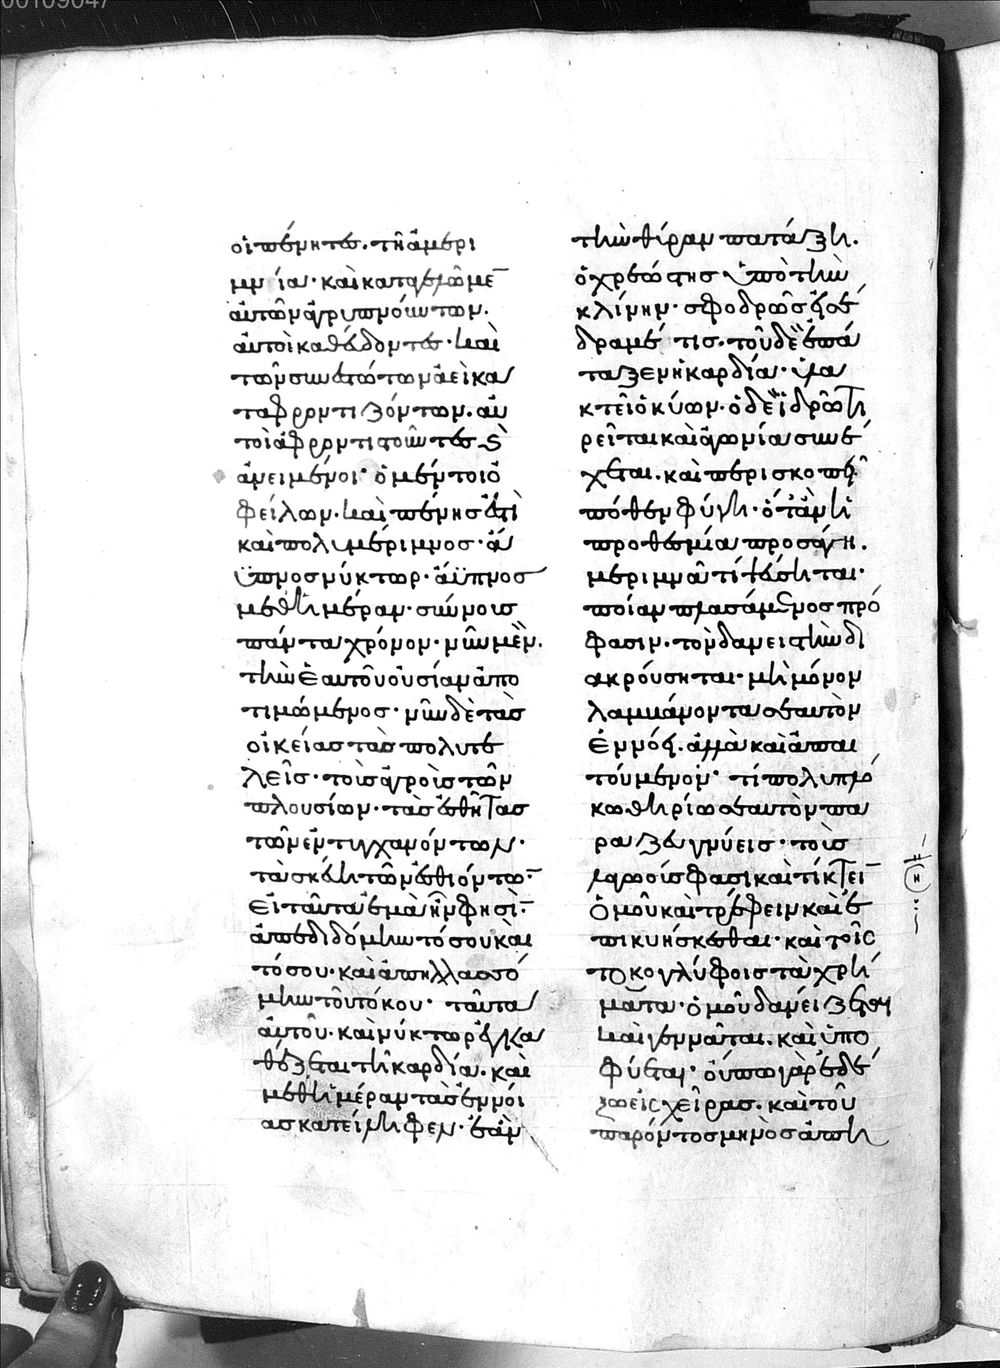 οἱ πένητες. τῇ ἀμερι
μνίᾳ· καὶ καταγελῶμε̅
αὐτῶν ἀγρυπνούντων.
αὐτοὶ καθεύδοντες· καὶ
τῶν συνεστώτων ἀεὶ κα
ὶ φροντιζόντων. αὐ
τοὶ ἀφροντιστοῦντες ϗ
ἀνειμένοι· ὁ μέντοι ὀ
φείλων. καὶ πένης ἐστὶ
καὶ πολυμέριμνος· ἄ
ϋπνος νύκτωρ· ἄϋπνος
μεθ' ἡμέραν· σύννοις
πάντα χρόνον· νῦν μὲν.
τὴν ἑαυτοῦ οὐσίαν ἀπο
τιμώμενος· νῦν δὲ τὰς
οἰκείας τὰς πολυτε
λεῖς· τοὺς ἀγροὺς τῶν
πλουσίων· τὰς ἐσθῆτας
τῶν ἐντυγχανόντων·
τὰ σκεύη τῶν ἑστιώντω̅·
εἰ ταῦτα ἐμὰ ἦν φησί̅·
ἀπεδιδόμην τόσου καὶ
τόσου· καὶ ἀπηλλασσό
μην τοῦ τόκου· ταῦτα
αὐτοῦ· καὶ νύκτωρ ἐγκα
θέζεται τῇ καρδίᾳ· καὶ
μεθ' ἡμέραν τὰς ἐννοί
ας κατείληφεν· ἐὰν
τὴν θύραν πατάξῃ.
ὁ χρεώστης ὑπὸ τὴν
κλίνην· σφοδρῶς εἰσέ
δραμέ τις. τοῦ δὲ ἐπά
ταξεν ἡ καρδία· ὑλα
κτεῖ ὁ κύων· ὁ δὲ ἱδρῶτι
ρεῖται καὶ ἀγωνία συνέ
χεται· καὶ περισκοπεῖ
πόθεν φύγῃ· ὅταν ἡ
προθεσμία προσάγῃ.
μεριμνᾷ τί ψεύσηται·
ποίαν πλασάμενος πρό
φασιν· τὸν δανειστὴν δι
ακρούσηται· μὴ μόνον
λαμβάνοντα σεαυτὸν
ἐννόει. ἀλλὰ καὶ ἀπαι
τούμενον· τί πολυτό
κῳ θηρίῳ σεαυτὸν πα
ραζευγνύεις· τοὺς
λαγωούς φασι καὶ τίκτει̅
ὁμοῦ καὶ τρέφειν καὶ ἐ
πικυΐσκεσθαι· καὶ τοῖς
τοκογλύφοις τὰ χρή
ματα· ὁμοῦ δανείζεται
καὶ γεννᾶται· καὶ ὑπο
φύεται· οὔπω γὰρ ἐδέ
ξω εἰς χεῖρας· καὶ τοῦ
παρόντος μηνὸς ἀπῃ